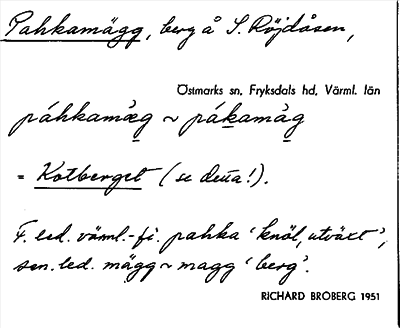 Pahkamägg, berg å S. Röjdåsen,
Östmarks sn, Fryksdals hd, Värml. län
páhkamæ̀g ~ pákamåg
= Kotberget (se detta!).
F. led. värml.-fi. pahka 'knöl, utväxt',
sen. led. mägg ~ magg 'berg'.
RICHARD BROBERG 1951